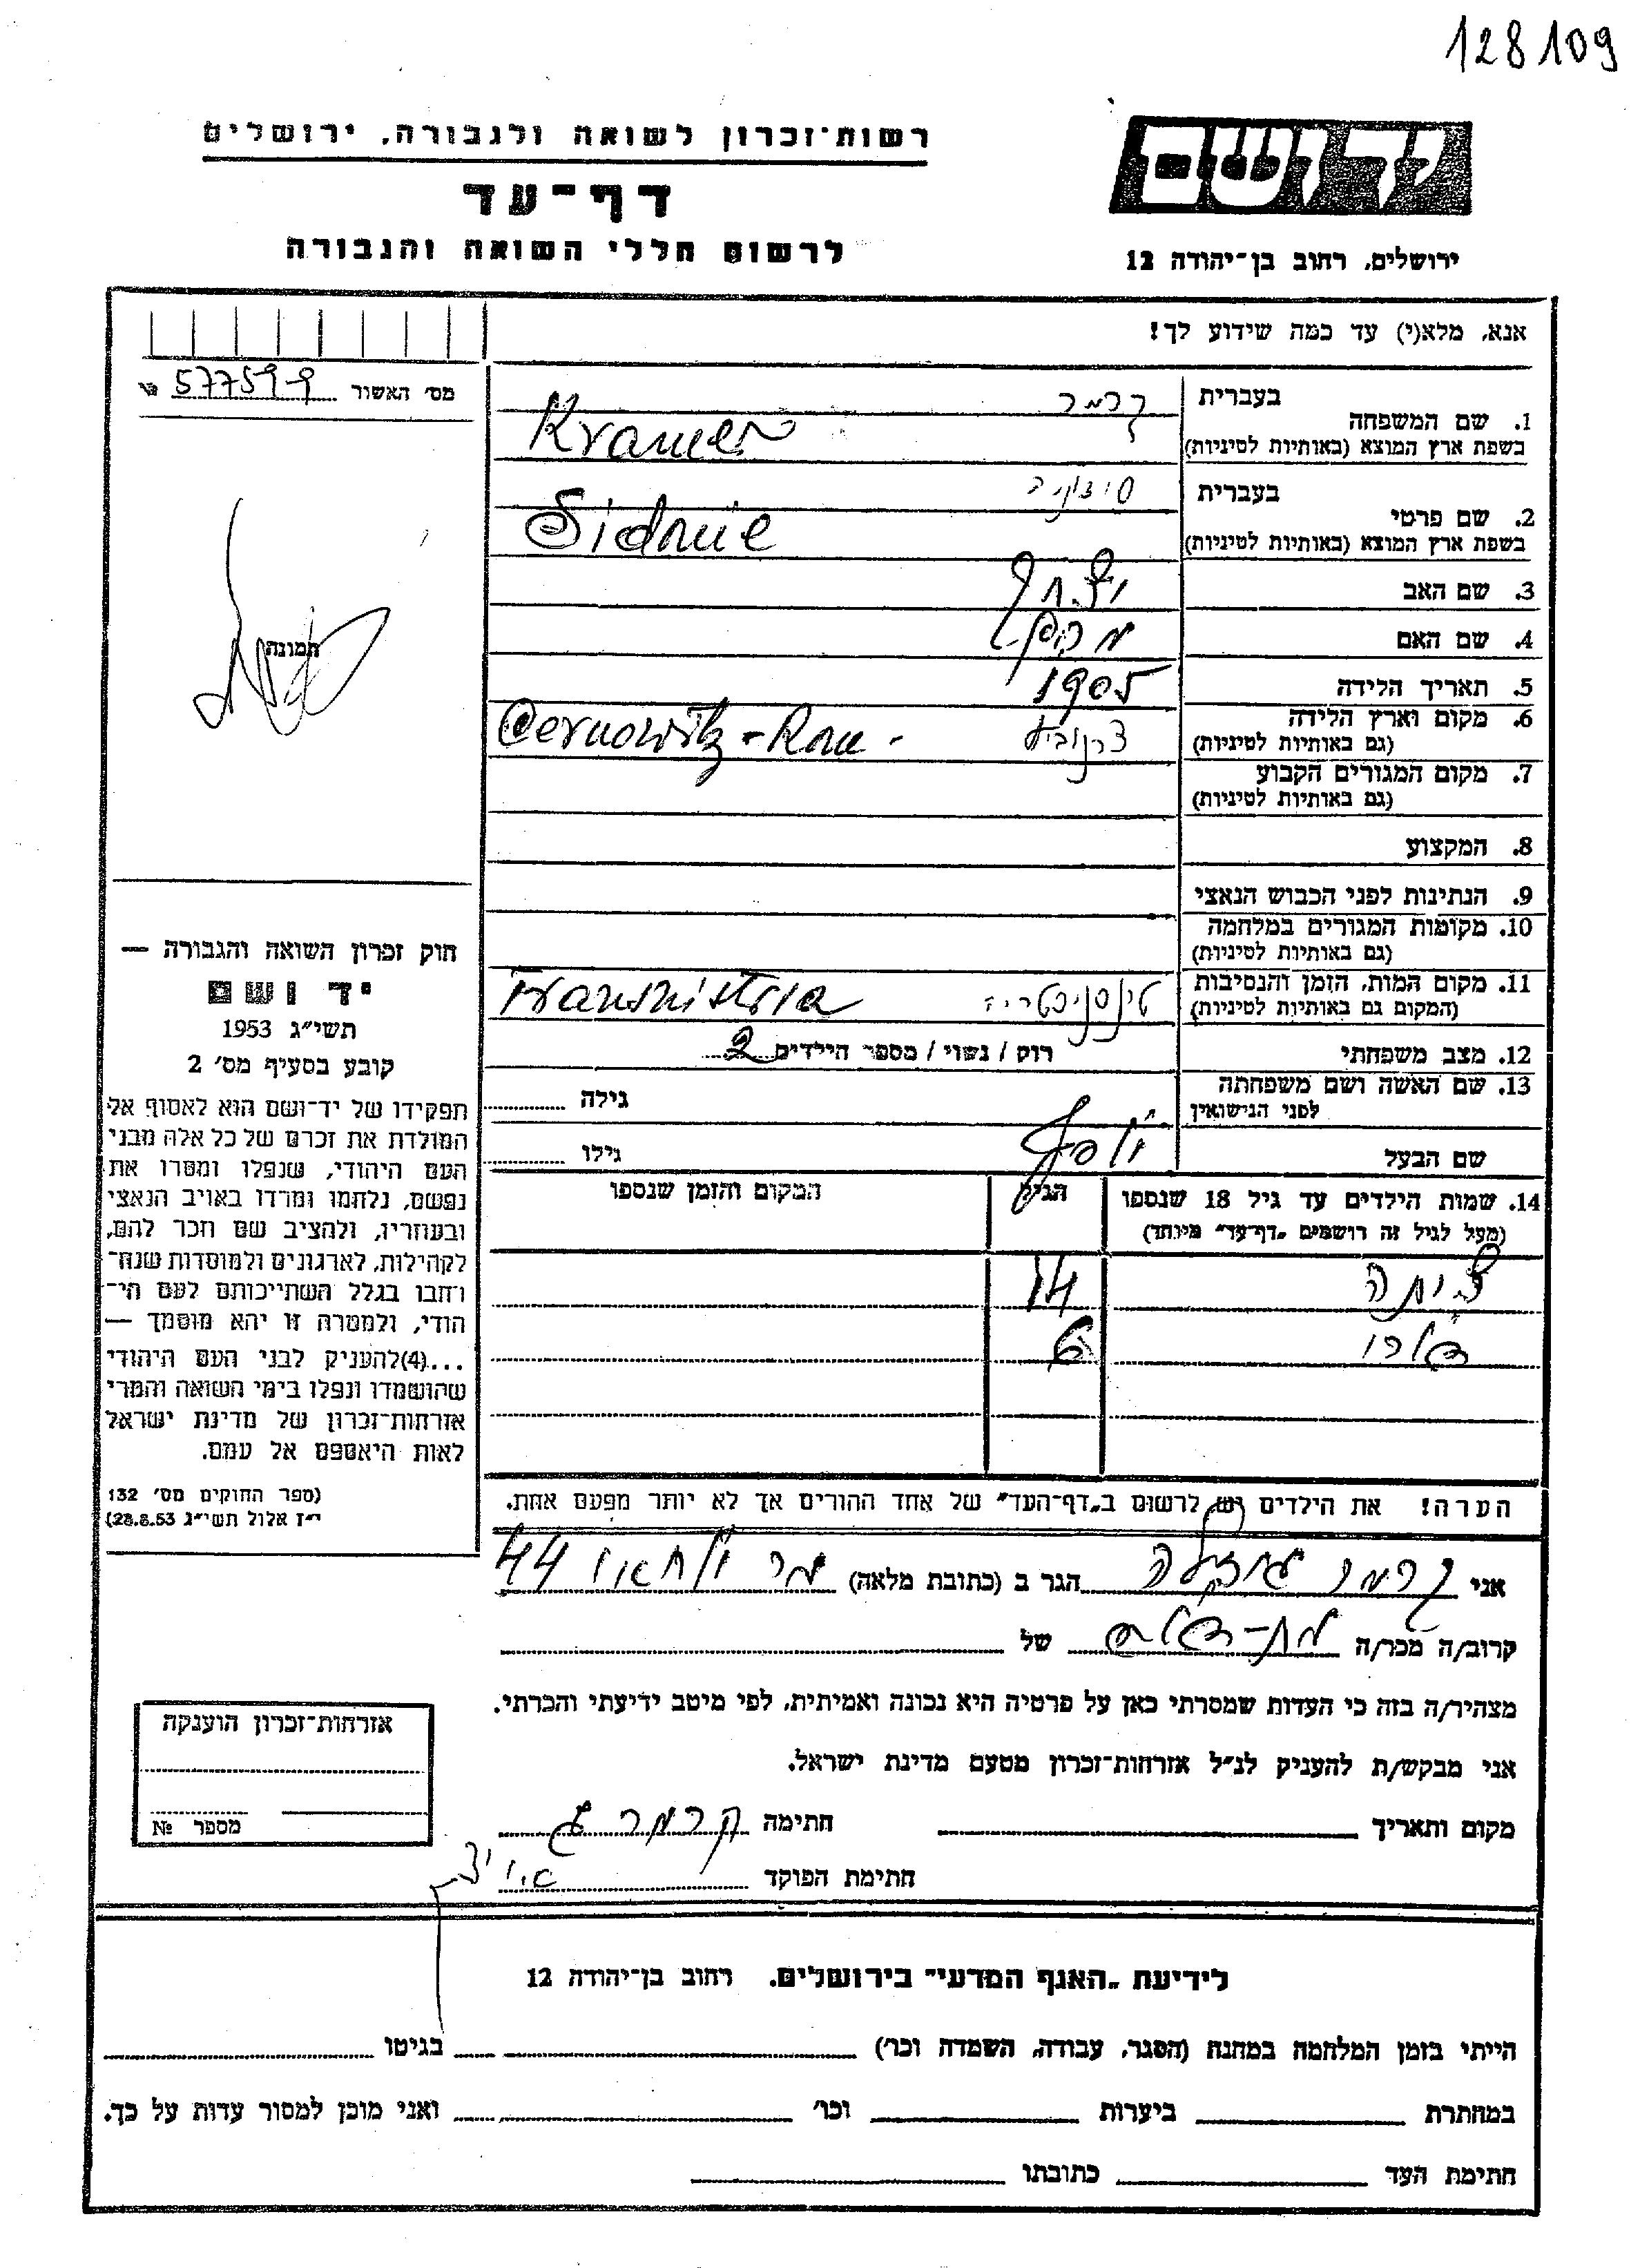 128109
רשות־זכרון לשואה ולגבורה, ירושלים
דף־עד
לרשום חללי השואה והגבורה
ידושם
ירושלים, רחוב בן־יהודה 12
אנא, מלא(י) עד כמה שידוע לך!
מס׳ האשור 577599
1. שם המשפחה
בעברית קרמר
בשפת ארץ המוצא (באותיות לטיניות) Kramer
2. שם פרטי
בעברית
בשפת ארץ המוצא (באותיות לטיניות) Sidonie
3. שם האב יצחק
4. שם האם
5. תאריך הלידה 1905
6. מקום וארץ הלידה צרנוביץ Cernowitz - Rom.
(גם באותיות לטיניות)
7. מקום המגורים הקבוע
(גם באותיות לטיניות)
8. המקצוע
9. הנתינות לפני הכבוש הנאצי
10. מקומות המגורים במלחמה
(גם באותיות לטיניות)
11. מקום המות, הזמן והנסיבות Transnistria
(המקום גם באותיות לטיניות)
12. מצב משפחתי רווק / נשוי / מספר הילדים 2
13. שם האשה ושם משפחתה גילה
לפני הנישואין
שם הבעל יוסף גילו
14. שמות הילדים עד גיל 18 שנספו הגיל המקום והזמן שנספו
(מעל לגיל זה רושמים „דף־עד״ מיוחד)
14
6
הערה! את הילדים יש לרשום ב„דף־העד״ של אחד ההורים אך לא יותר מפעם אחת.
אני קרמר הגר ב (כתובת מלאה) 44
קרוב/ה מכר/ה של
מצהיר/ה בזה כי העדות שמסרתי כאן על פרטיה היא נכונה ואמיתית, לפי מיטב ידיעתי והכרתי.
אני מבקש/ת להעניק לנ״ל אזרחות־זכרון מטעם מדינת ישראל.
מקום ותאריך חתימה קרמר
חתימת הפוקד
תמונה
חוק זכרון השואה והגבורה —
יד ושם
תשי״ג 1953
קובע בסעיף מס׳ 2
תפקידו של יד־ושם הוא לאסוף אל
המולדת את זכרם של כל אלה מבני
העם היהודי, שנפלו ומסרו את
נפשם, נלחמו ומרדו באויב הנאצי
ובעוזריו, ולהציב שם וזכר להם,
לקהילות, לארגונים ולמוסדות שנח־
רבו בגלל השתייכותם לעם הי־
הודי, ולמטרה זו יהא מוסמך —
...(4)להעניק לבני העם היהודי
שהושמדו ונפלו בימי השואה והמרי
אזרחות־זכרון של מדינת ישראל
לאות היאספם אל עמם.
(ספר החוקים מס׳ 132
י״ז אלול תשי״ג 28.8.53)
אזרחות־זכרון הוענקה
מספר №
לידיעת „האגף המדעי״ בירושלים. רחוב בן־יהודה 12
הייתי בזמן המלחמה במחנה (הסגר, עבודה, השמדה וכו׳) בגיטו
במחתרת ביערות וכו׳ ואני מוכן למסור עדות על כך.
חתימת העד כתובתו